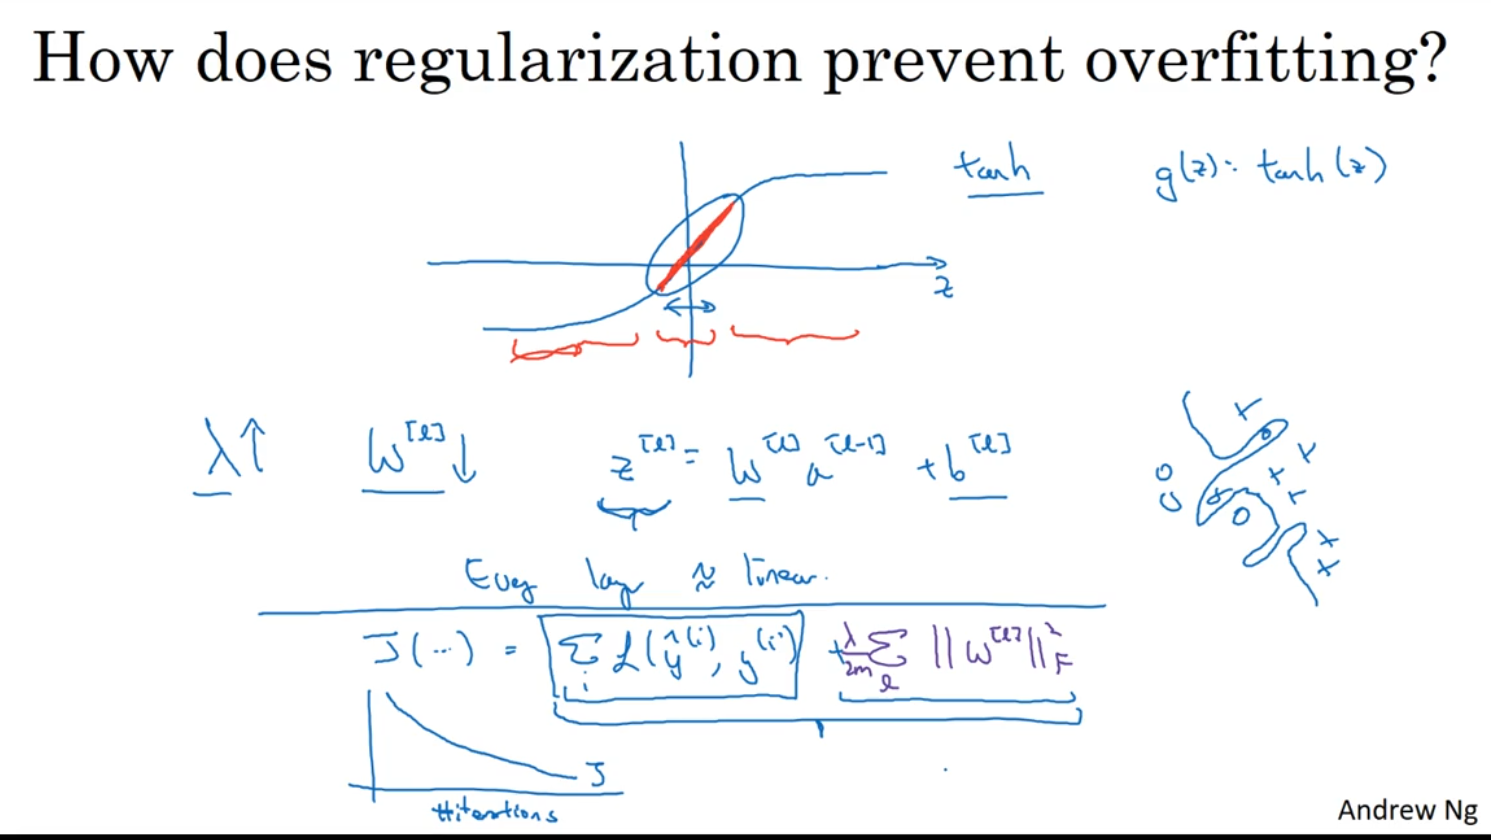 How does regularization prevent overfitting?
tanh
g(z): tanh(z)
z
λ↑ W^[l]↓ z^[l] = W^[l] a^[l-1] + b^[l]
Every layer ≈ linear.
J(...) = Σ_i L(ŷ^(i), y^(i)) + λ/2m Σ_l ||W^[l]||²_F
J
#iterations
Andrew Ng